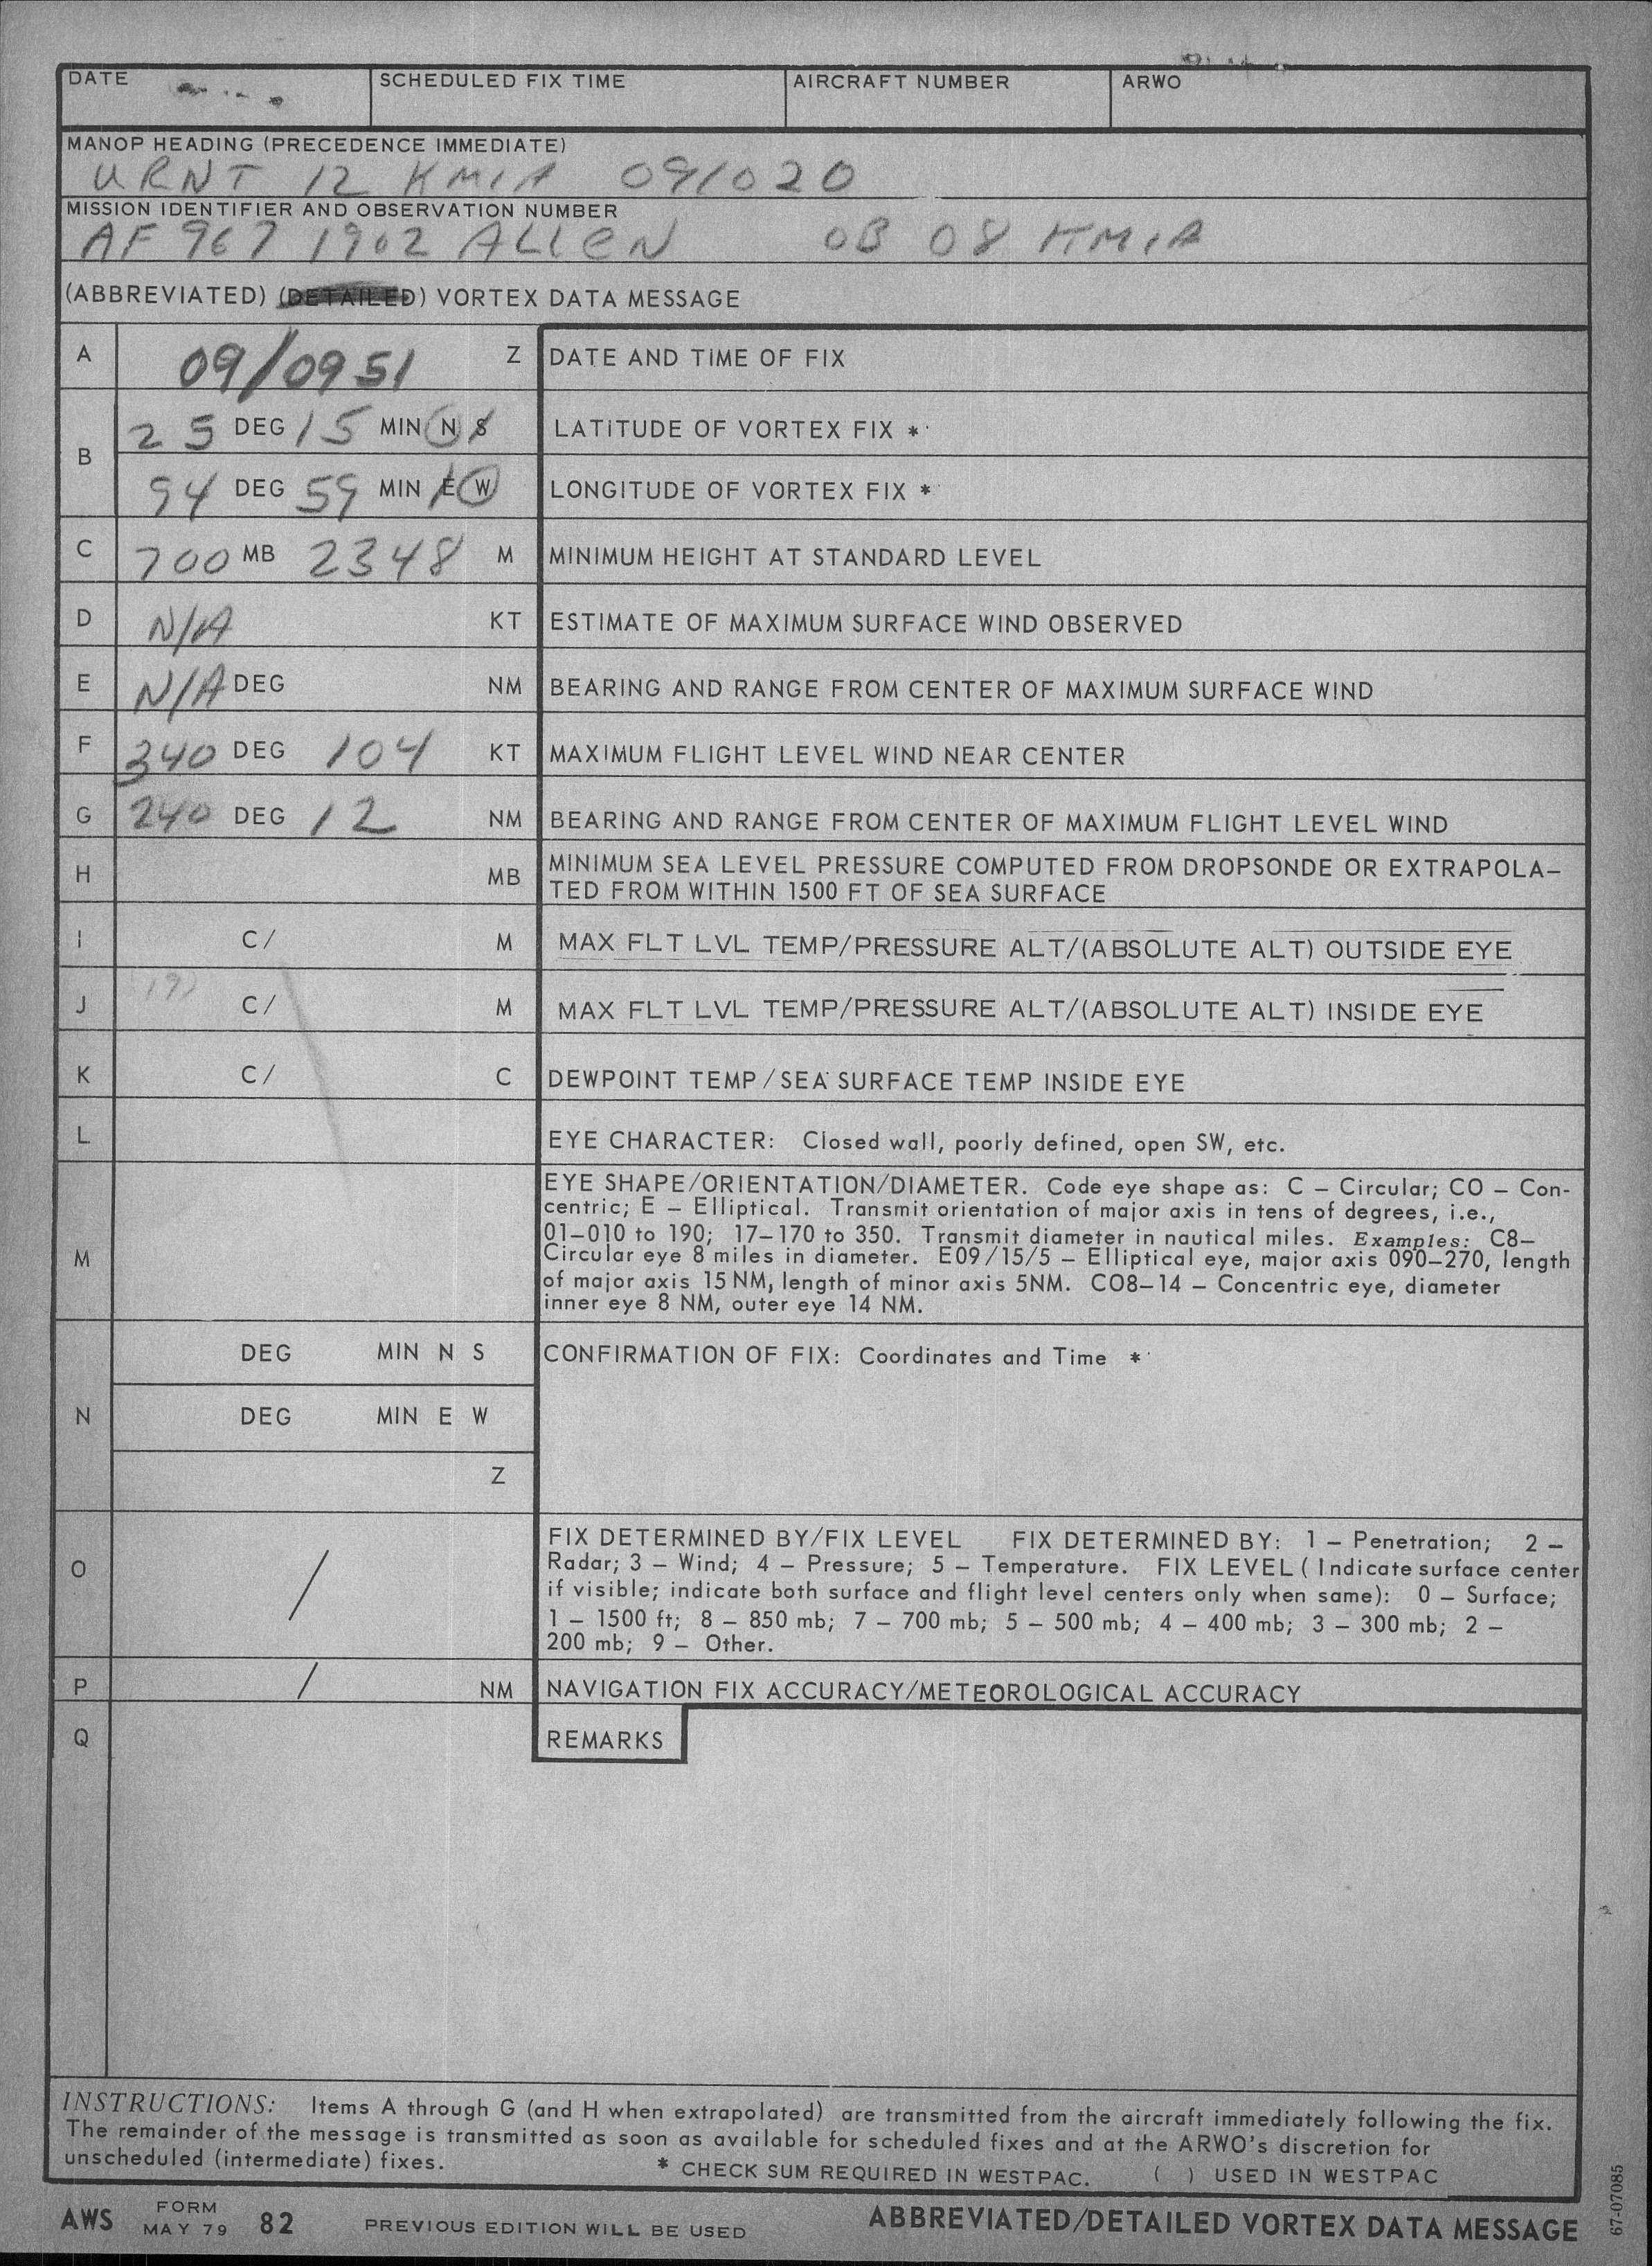 DATE SCHEDULED FIX TIME AIRCRAFT NUMBER ARWO
MANOP HEADING (PRECEDENCE IMMEDIATE)
URNT 12 KMIA 091020
MISSION IDENTIFIER AND OBSERVATION NUMBER
AF 967 1902 ALLEN OB 08 KMIA
(ABBREVIATED) (DETAILED) VORTEX DATA MESSAGE
A 09/0951 Z DATE AND TIME OF FIX
B 25 DEG 15 MIN N S LATITUDE OF VORTEX FIX *
94 DEG 59 MIN E W LONGITUDE OF VORTEX FIX *
C 700 MB 2348 M MINIMUM HEIGHT AT STANDARD LEVEL
D N/A KT ESTIMATE OF MAXIMUM SURFACE WIND OBSERVED
E N/A DEG NM BEARING AND RANGE FROM CENTER OF MAXIMUM SURFACE WIND
F 340 DEG 104 KT MAXIMUM FLIGHT LEVEL WIND NEAR CENTER
G 240 DEG 12 NM BEARING AND RANGE FROM CENTER OF MAXIMUM FLIGHT LEVEL WIND
H MB MINIMUM SEA LEVEL PRESSURE COMPUTED FROM DROPSONDE OR EXTRAPOLA-
TED FROM WITHIN 1500 FT OF SEA SURFACE
I C/ M MAX FLT LVL TEMP/PRESSURE ALT/(ABSOLUTE ALT) OUTSIDE EYE
J C/ M MAX FLT LVL TEMP/PRESSURE ALT/(ABSOLUTE ALT) INSIDE EYE
K C/ C DEWPOINT TEMP/SEA SURFACE TEMP INSIDE EYE
L EYE CHARACTER: Closed wall, poorly defined, open SW, etc.
M EYE SHAPE/ORIENTATION/DIAMETER. Code eye shape as: C – Circular; CO – Con-
centric; E – Elliptical. Transmit orientation of major axis in tens of degrees, i.e.,
01–010 to 190; 17–170 to 350. Transmit diameter in nautical miles. Examples: C8–
Circular eye 8 miles in diameter. E09/15/5 – Elliptical eye, major axis 090–270, length
of major axis 15 NM, length of minor axis 5NM. CO8–14 – Concentric eye, diameter
inner eye 8 NM, outer eye 14 NM.
N DEG MIN N S CONFIRMATION OF FIX: Coordinates and Time *
DEG MIN E W
Z
O / FIX DETERMINED BY/FIX LEVEL FIX DETERMINED BY: 1 – Penetration; 2 –
Radar; 3 – Wind; 4 – Pressure; 5 – Temperature. FIX LEVEL (Indicate surface center
if visible; indicate both surface and flight level centers only when same): 0 – Surface;
1 – 1500 ft; 8 – 850 mb; 7 – 700 mb; 5 – 500 mb; 4 – 400 mb; 3 – 300 mb; 2 –
200 mb; 9 – Other.
P / NM NAVIGATION FIX ACCURACY/METEOROLOGICAL ACCURACY
Q REMARKS
INSTRUCTIONS: Items A through G (and H when extrapolated) are transmitted from the aircraft immediately following the fix.
The remainder of the message is transmitted as soon as available for scheduled fixes and at the ARWO's discretion for
unscheduled (intermediate) fixes. * CHECK SUM REQUIRED IN WESTPAC. ( ) USED IN WESTPAC
AWS FORM MAY 79 82 PREVIOUS EDITION WILL BE USED ABBREVIATED/DETAILED VORTEX DATA MESSAGE
67-07085